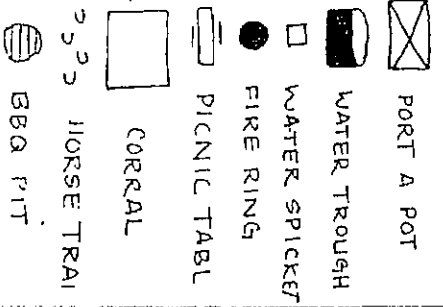 PORT A POT
WATER TROUGH
WATER SPICKET
FIRE RING
PICNIC TABL
CORRAL
HORSE TRAI
BBQ PIT